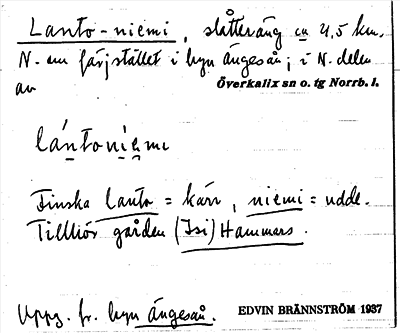 Lanto-niemi, slåtteräng ca 4,5 km.
N. om färjstället i byn Ängeså; i N. delen
av Överkalix sn o. tg Norrb. l.
lántoniemi
Finska lanto = kärr, niemi = udde.
Tillhör gården (Isi) Hammars.
Uppg. fr. byn Ängeså. EDVIN BRÄNNSTRÖM 1937